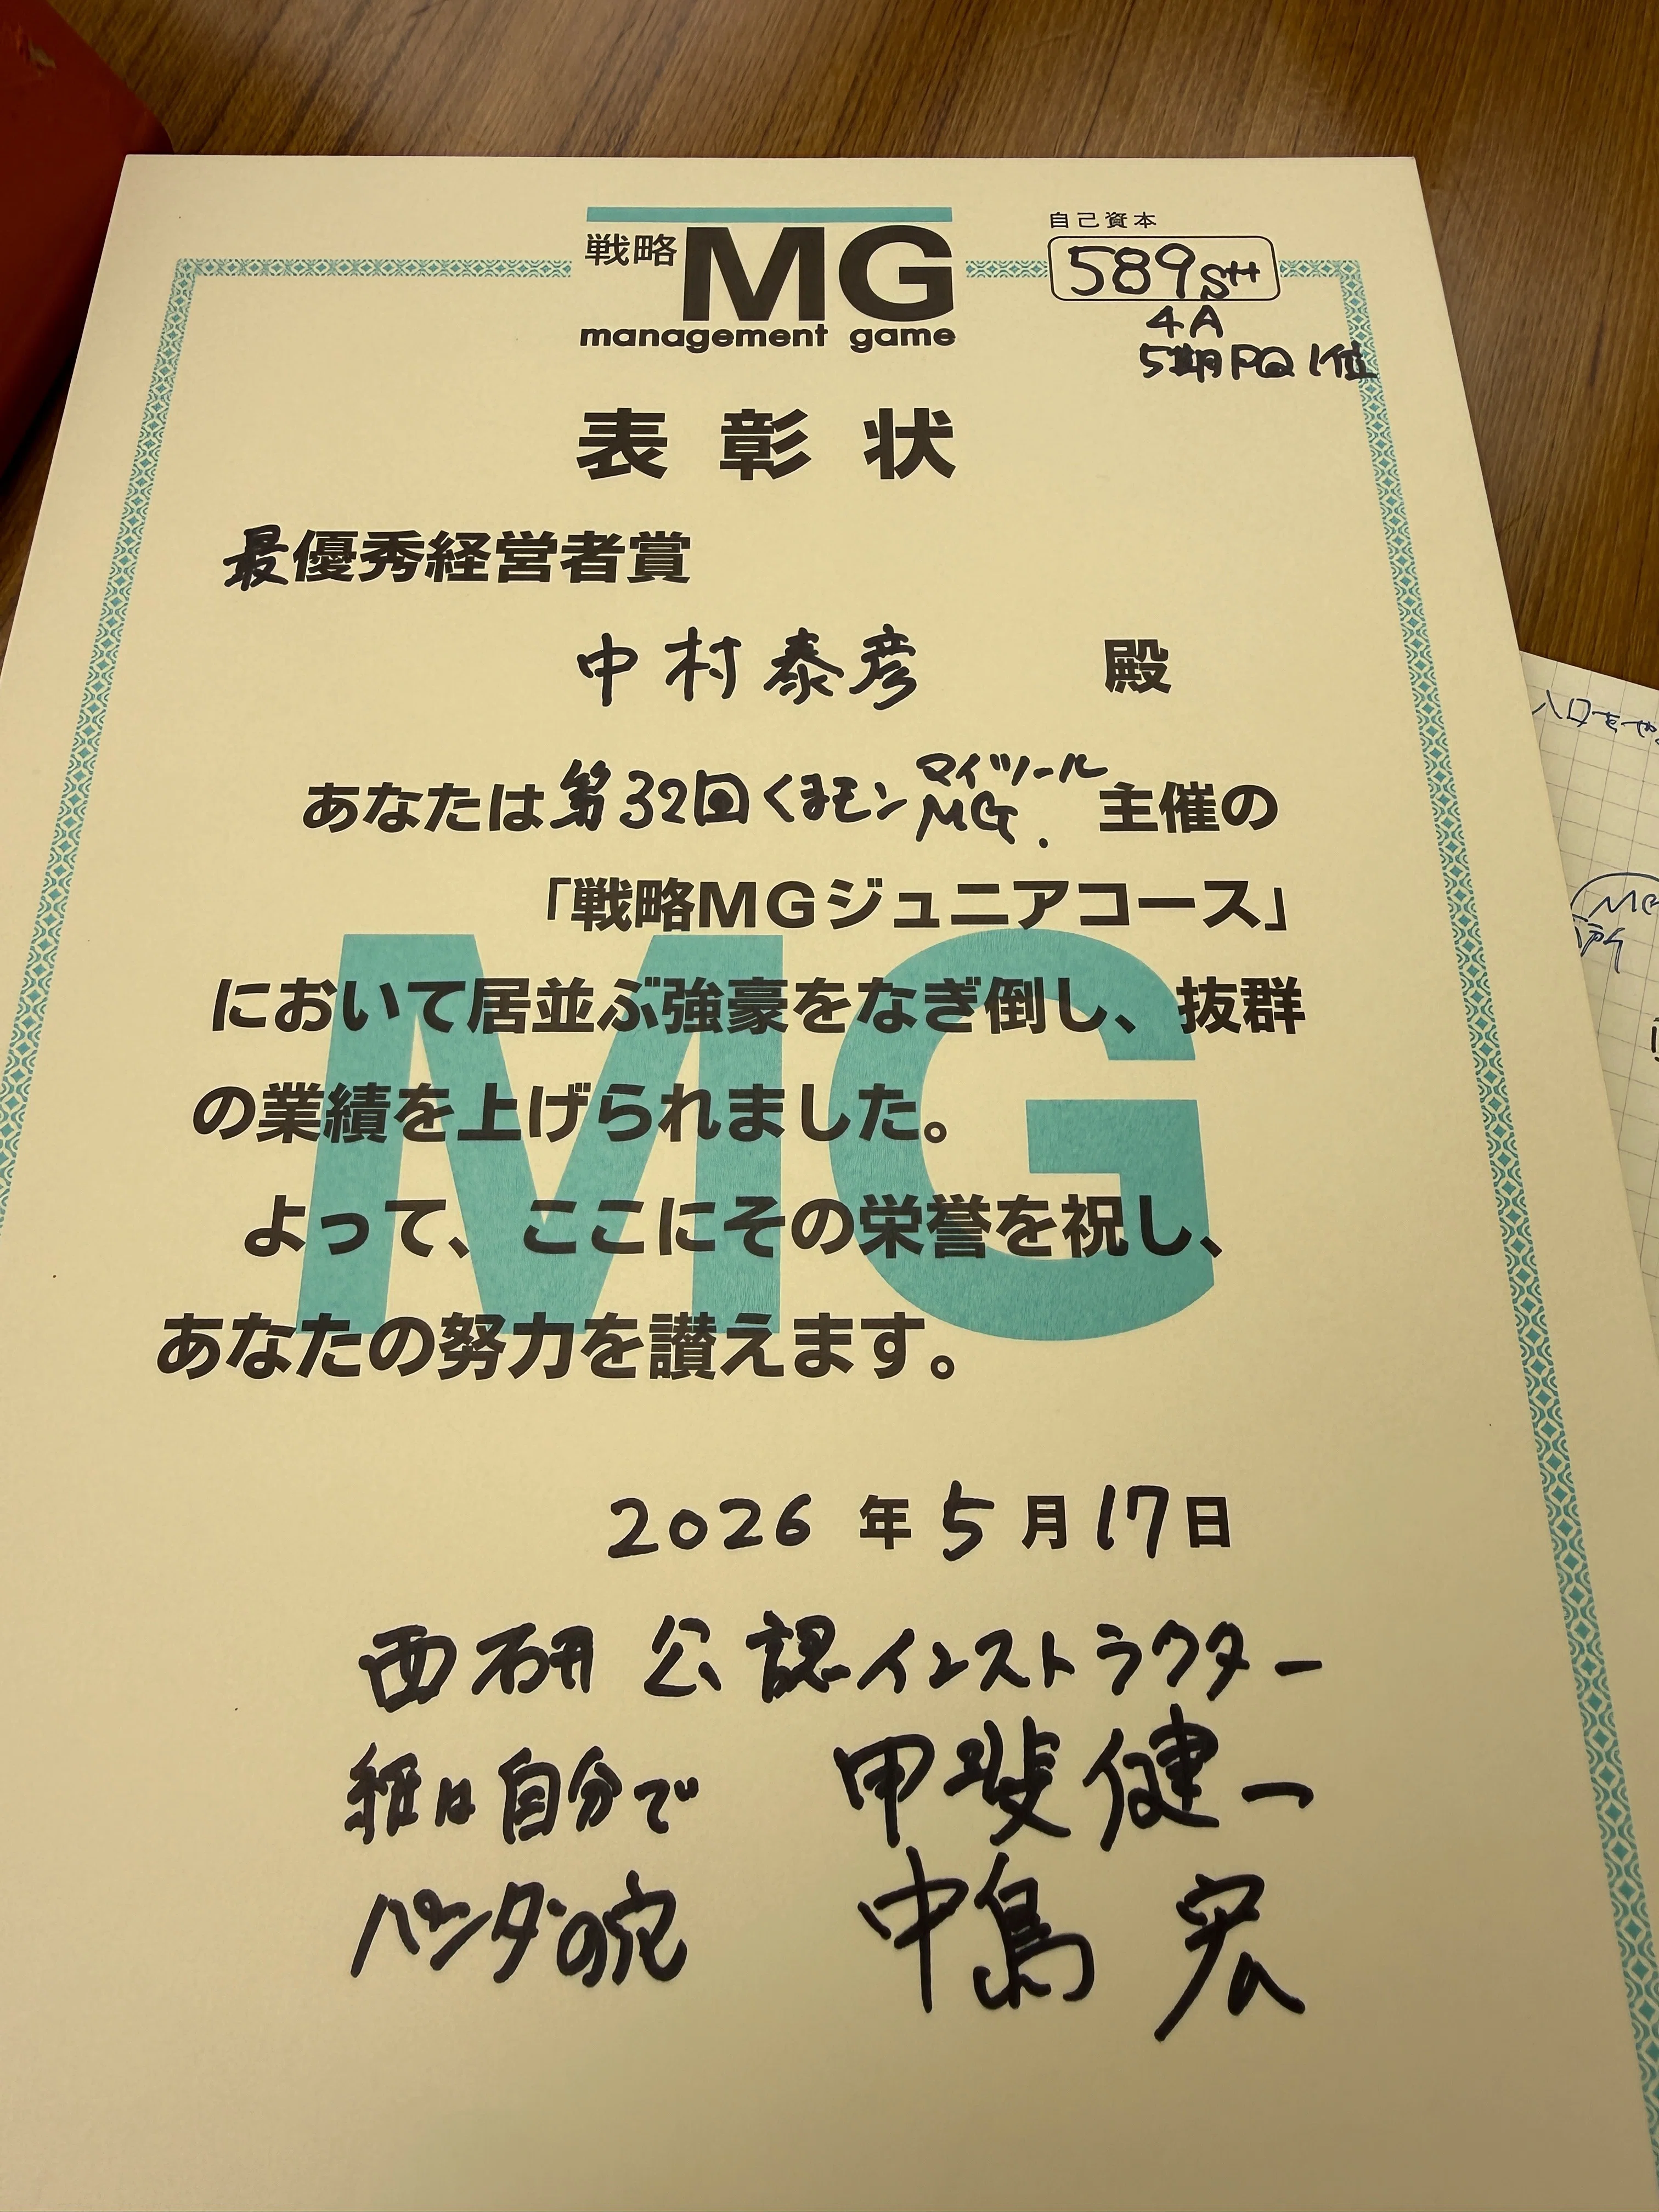 戦略MG
management game
自己資本
589S++
4A
5期PQ1位
表彰状
最優秀経営者賞
中村泰彦 殿
マイツール
あなたは第32回くまモンMG.主催の
「戦略MGジュニアコース」
において居並ぶ強豪をなぎ倒し、抜群
の業績を上げられました。
よって、ここにその栄誉を祝し、
あなたの努力を讃えます。
2026年5月17日
西研公認インストラクター
紙は自分で 甲斐健一
パンダの穴 中島宏
MG